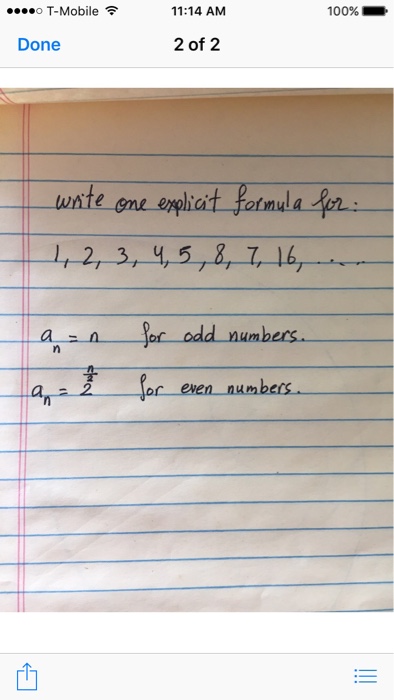 T-Mobile 11:14 AM 100%
Done 2 of 2
write one explicit formula for:
1, 2, 3, 4, 5, 8, 7, 16, .....
aₙ = n for odd numbers.
aₙ = 2^(n/2) for even numbers.